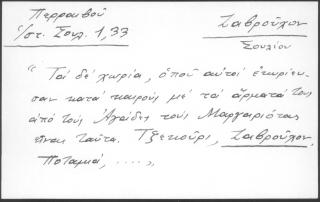 Περραιβού
Ἱστ. Σουλ. 1,33
Ζαβροῦχον
Σουλίου
"Τά δέ χωρία, ὁποῦ αὐτοί ἐκυρίευ-
σαν κατά καιρούς μέ τά ἅρματά τους
ἀπό τούς Ἀγάδες τούς Μαργαριῶτας
εἶναι ταῦτα. Τζεκούρι, Ζαβροῦχον,
Ποταμιά, ....."